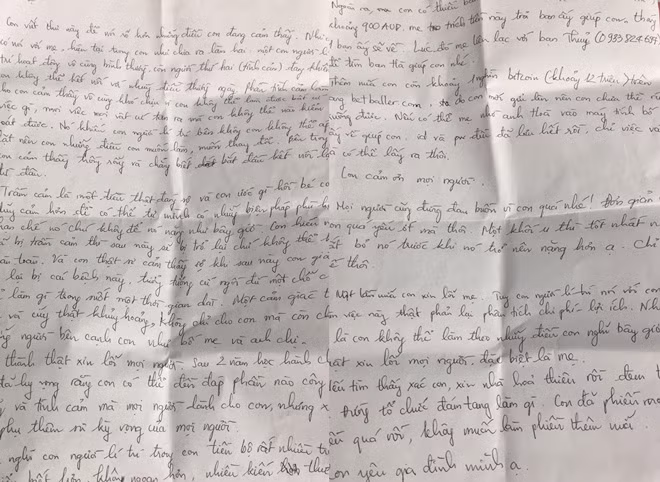 Con viết thư này để nói rõ hơn những điều con đang cảm thấy. Như
có nói với mẹ, hiện tại trong con như chia ra làm hai, một con người lí
trí hoạt động vô cùng bình thường, con người thứ hai (tình cảm) thấy
con không thể kết nối với những điều thường ngày. Phần tình cảm làm
cho con cảm thấy vô cùng khó chịu vì con không thể làm được bất cứ
việc gì, mọi việc mọi vật cứ trôi ra mà con không thể nào kiểm
soát được. Nó khiến con người lí trí bên trong con không thể
nên con những điều con muốn làm, muốn thay đổi. Bên trong
con cảm thấy trống rỗng và chẳng biết bắt đầu kết nối lại
từ đâu.
Trầm cảm là một điều thật đáng sợ và con ước gì hồi bé có
cảm hơn để có thể tự mình có những biện pháp
chế nó chứ không để nó nặng như bây giờ. Con hiểu
bị trầm cảm thì sau này sẽ bị trở lại chứ không thể
toàn. Và con thật sự cảm thấy sợ khi sau này con
lại bị cái bệnh này, tưởng tượng cứ ngồi đủ một chỗ
làm gì trong suốt một thời gian dài. Một cảm giác
và cùng thật khủng hoảng, không chỉ cho con mà còn
người bên cạnh con như bố mẹ và anh chị.
thành thật xin lỗi mọi người. Sau 2 năm học hành
hy vọng rằng con có thể đền đáp phần nào công
và tình cảm mà mọi người dành cho con, nhưng
phụ thêm sự kỳ vọng của mọi người.
nghĩ con người lí trí trong con tiến bộ rất nhiều
biết hơn, không ngoan hơn, nhiều kiến thức
Ngoài ra, mẹ con có thiếu bạn
khoảng 900 AUD. mẹ trả tiền này trả bạn ấy giúp con, tháng
bạn ấy sẽ về. Lúc đó mẹ liên lạc với bạn Thuý (0983824639
để tìm bạn Hà giúp con nhé.
thêm nữa con còn khoảng 1 nghìn bitcoin (khoảng 12 triệu) trên
trang betballer com, do con mới gửi lên nên con chưa thể rút
được. Nếu có thể mẹ nhờ anh Thơ vào máy tính bố
về giúp con. id và pw đều đã lưu hết rồi, chỉ việc vào
là có thể lấy ra thôi.
Con cảm ơn mọi người.
Mọi người cũng đừng đau buồn vì con quá nhé! Đơn giản
con qua yếu ớt mà thôi. Một khối u thì tốt nhất nên
cắt bỏ nó trước khi nó trở nên nặng hơn ạ. Chỉ
thế thôi.
Một lần nữa con xin lỗi mẹ. Tuy con người lí trí nói với con
việc này thật phải lại phân tích chi phí - lợi ích. Nhưng
là con không thể làm theo những điều con nghĩ bây giờ
thật xin lỗi mọi người. đặc biệt là mẹ.
Nếu tìm thấy xác con, xin nhà hoả thiêu rồi đem
đừng tổ chức đám tang làm gì. Con đã phiền mọi
quá rồi, không muốn làm phiền thêm nữa.
Con yêu gia đình mình ạ.